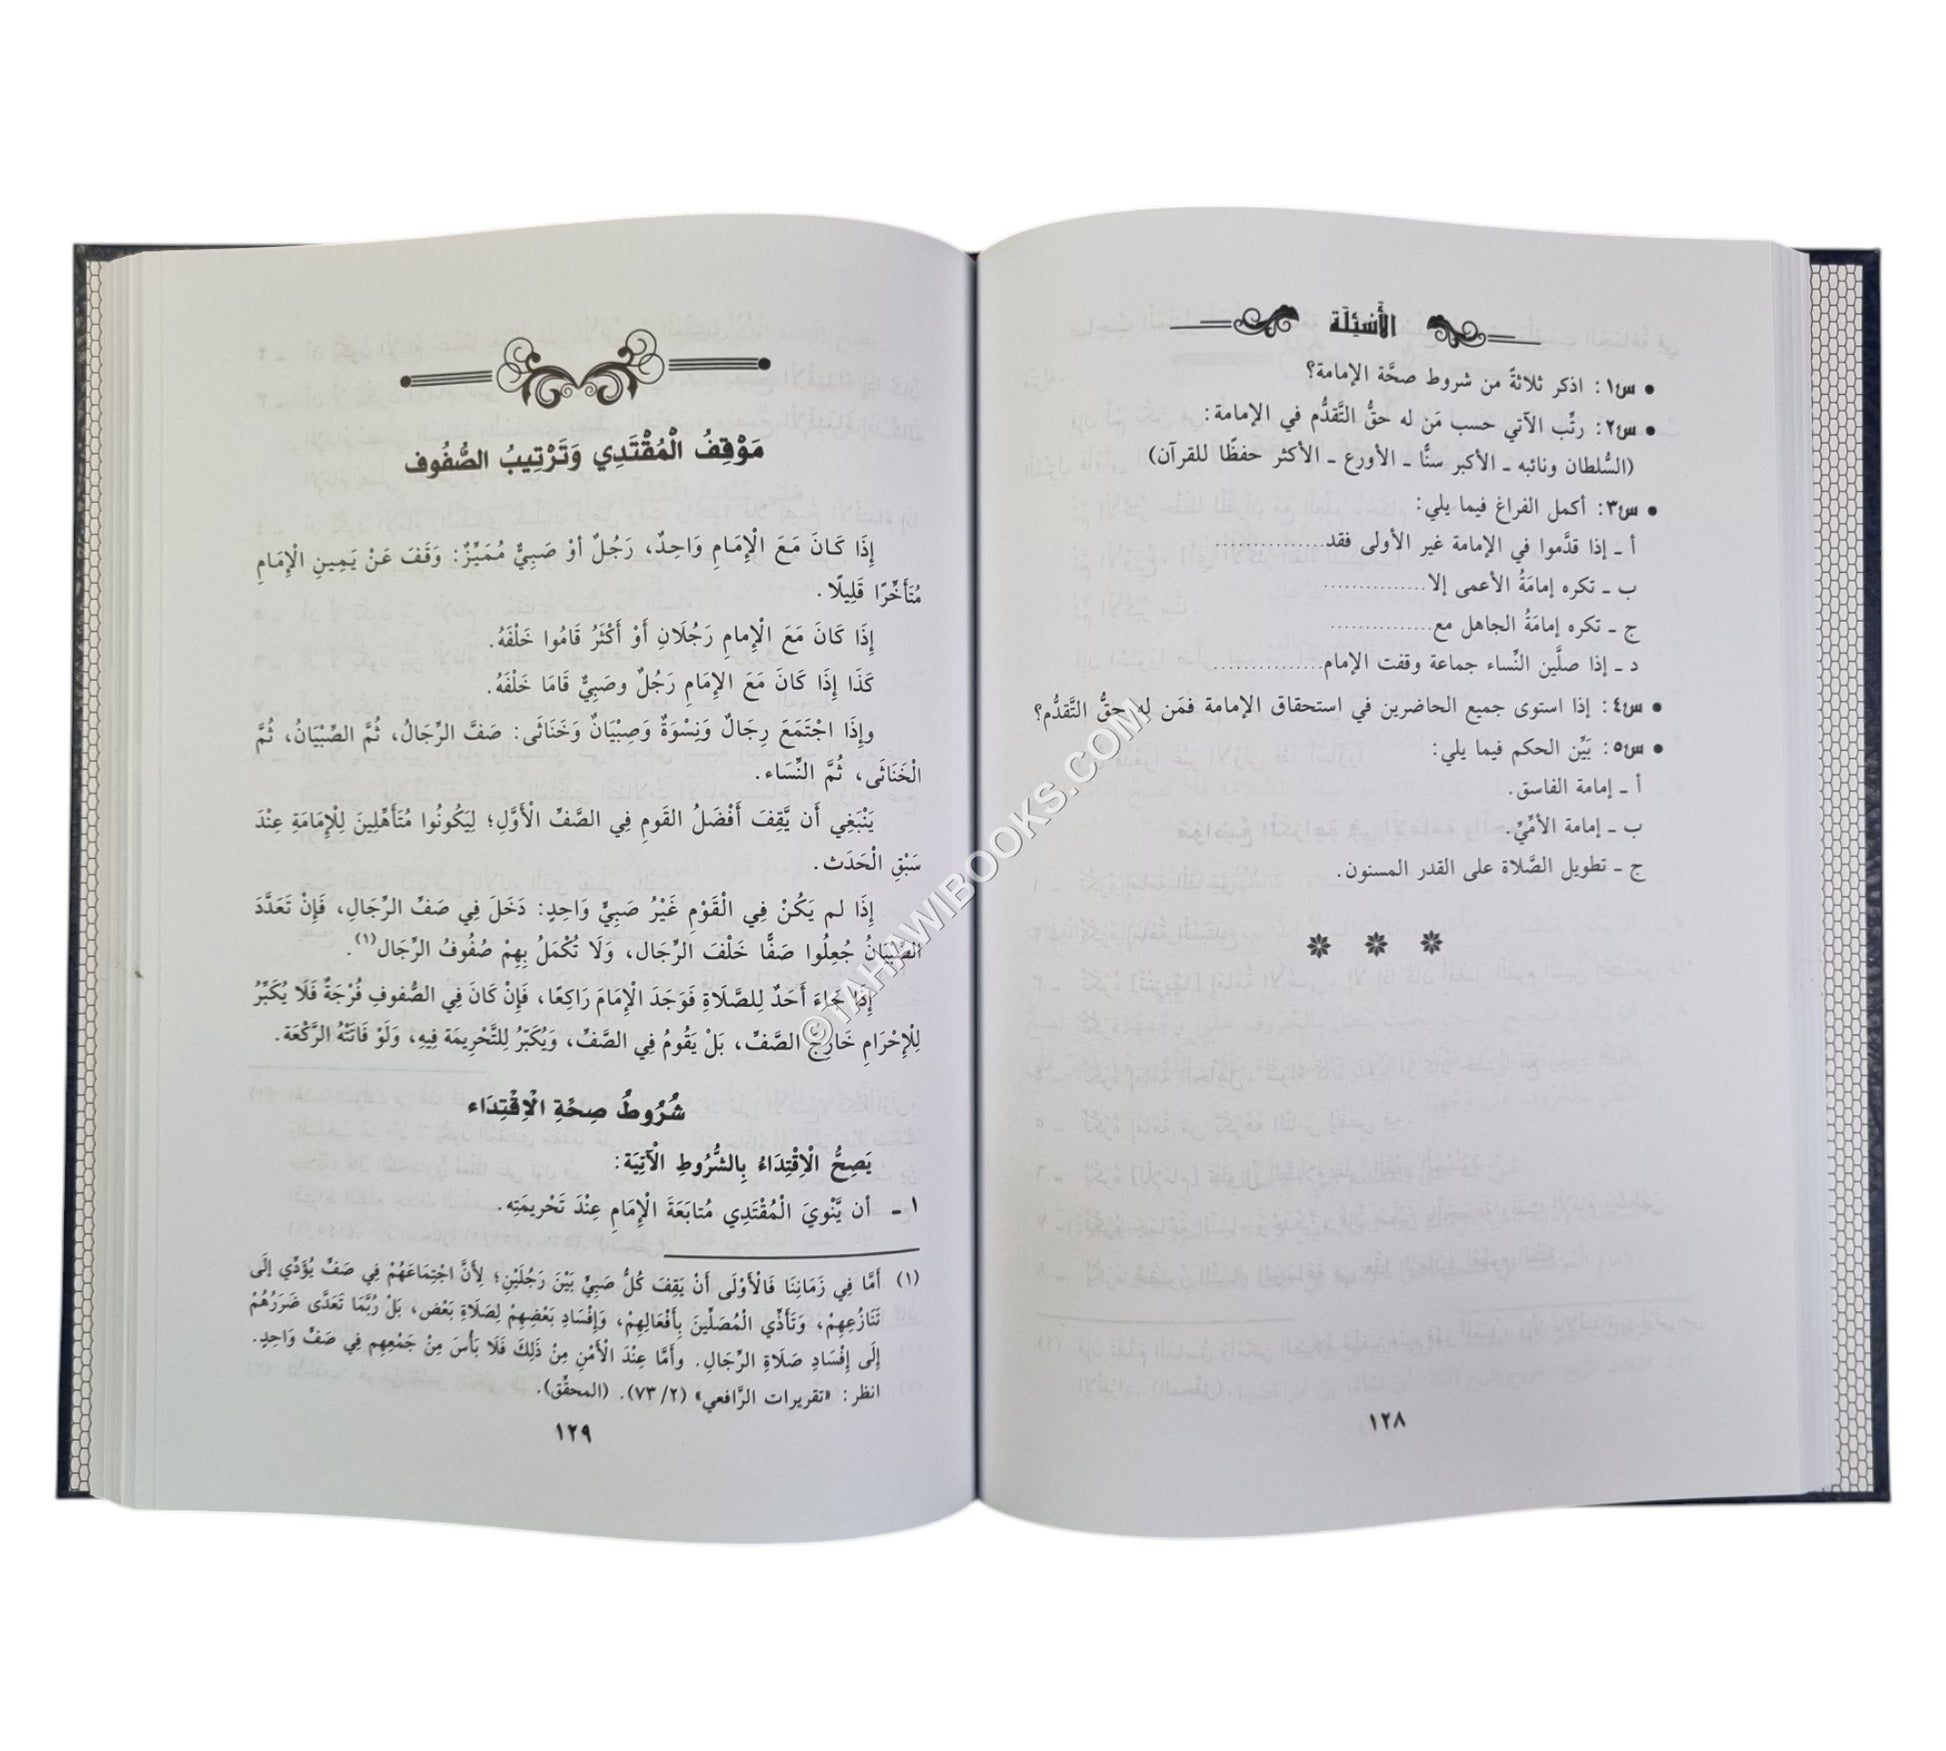 الأَسْئِلَة
• س١: اذكر ثلاثةً من شروط صحَّة الإمامة؟
• س٢: رتِّب الآتي حسب مَن له حقُّ التَّقدُّم في الإمامة:
(السُّلطان ونائبه ـ الأكبر سنًّا ـ الأورع ـ الأكثر حفظًا للقرآن)
• س٣: أكمل الفراغ فيما يلي:
أ ـ إذا قدَّموا في الإمامة غير الأولى فقد................
ب ـ تكره إمامَةُ الأعمى إلا...............
ج ـ تكره إمامَةُ الجاهل مع...............
د ـ إذا صلَّين النِّساء جماعة وقفت الإمام................
• س٤: إذا استوى جميع الحاضرين في استحقاق الإمامة فمَن له حقُّ التَّقدُّم؟
• س٥: بَيِّن الحكم فيما يلي:
أ ـ إمامة الفاسق.
ب ـ إمامة الأمِّيِّ.
ج ـ تطويل الصَّلاة على القدر المسنون.
١٢٨
مَوْقِفُ الْمُقْتَدِي وَتَرْتِيبُ الصُّفُوف
إِذَا كَانَ مَعَ الْإِمَامِ وَاحِدٌ، رَجُلٌ أوْ صَبِيٌّ مُمَيِّزٌ: وَقَفَ عَنْ يَمِينِ الْإِمَامِ
مُتَأَخِّرًا قَلِيلًا.
إِذَا كَانَ مَعَ الْإِمامِ رَجُلَانِ أَوْ أَكْثَرُ قَامُوا خَلْفَهُ.
كَذَا إِذَا كَانَ مَعَ الإِمَامِ رَجُلٌ وصَبِيٌّ قَامَا خَلْفَهُ.
وإِذَا اجْتَمَعَ رِجَالٌ وَنِسْوَةٌ وَصِبْيَانٌ وَخَنَاثَى: صَفَّ الرِّجَالُ، ثُمَّ الصِّبْيَانُ، ثُمَّ
الْخَنَاثَى، ثُمَّ النِّسَاء.
يَنْبَغِي أَن يَّقِفَ أَفْضَلُ القَومِ فِي الصَّفِّ الْأَوَّلِ؛ لِيَكُونُوا مُتَأَهِّلِينَ لِلْإِمَامَةِ عِنْدَ
سَبْقِ الْحَدَث.
إِذَا لم يَكُنْ فِي الْقَوْمِ غَيْرُ صَبِيٍّ وَاحِدٍ: دَخَلَ فِي صَفِّ الرِّجَالِ، فَإِنْ تَعَدَّدَ
الصِّبْيَانُ جُعِلُوا صَفًّا خَلْفَ الرِّجَال، وَلَا تُكْمَلُ بِهِمْ صُفُوفُ الرِّجَال(١).
إِذَا جَاءَ أَحَدٌ لِلصَّلَاةِ فَوَجَدَ الْإِمَامَ رَاكِعًا، فَإِنْ كَانَ فِي الصُّفوفِ فُرْجَةٌ فَلَا يُكَبِّرُ
لِلْإِحْرَامِ خَارِجَ الصَّفِّ، بَلْ يَقُومُ فِي الصَّفِّ، وَيُكَبِّرُ لِلتَّحْرِيمَة فِيهِ، وَلَوْ فَاتَتْهُ الرَّكْعَة.
شُرُوطُ صِحَّةِ الِاقْتِدَاء
يَصِحُّ الْاِقْتِدَاءُ بِالشُّرُوطِ الْآتِيَة:
١ ـ أن يَّنْوِيَ الْمُقْتَدِي مُتابَعَةَ الْإِمَامِ عِنْدَ تَحْرِيمَتِه.
(١) أَمَّا فِي زَمَانِنَا فَالْأَوْلَى أَنْ يَقِفَ كُلُّ صَبِيٍّ بَيْنَ رَجُلَيْنِ؛ لِأَنَّ اجْتِمَاعَهُمْ فِي صَفٍّ يُؤَدِّي إلَى
تَنَازُعِهِمْ، وَتَأَذِّي الْمُصَلِّينَ بِأَفْعَالِهِمْ، وَإِفْسَادِ بَعْضِهِمْ لِصَلَاةِ بَعْض، بَلْ رُبَّمَا تَعَدَّى ضَرَرُهُمْ
إِلَى إِفْسَادِ صَلَاةِ الرِّجَالِ. وأَمَّا عِنْدَ الْأَمْنِ مِنْ ذَلِكَ فَلَا بَأْسَ مِنْ جَمْعِهِم فِي صَفٍّ وَاحِدٍ.
انظر: «تقريرات الرَّافعي» (٢/ ٧٣). (المحقِّق).
١٢٩
©TAHAWIBOOKS.COM